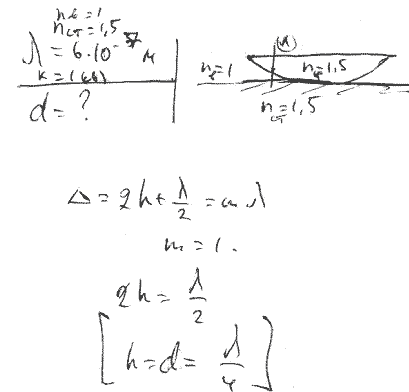 n_в = 1
n_ст = 1,5
λ = 6·10⁻⁷ м
d = ?
(λ)
n_в = 1
n_ст = 1,5
Δ = 2h + λ/2 = mλ
m = 1.
2h = λ/2
[h = d = λ/4]